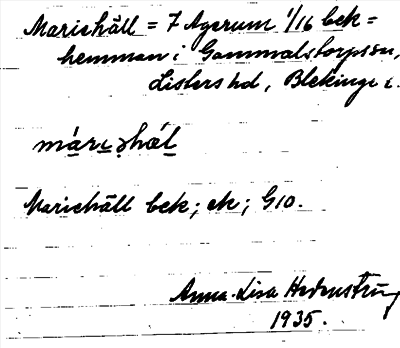 Mariehäll = 7 Agerum 1/16 bek =
hemman i Gammalstorps sn,
Listers hd, Blekinge l.
Mariehäll bek; ek; G10.
Anna-Lisa Hedenström
1935.